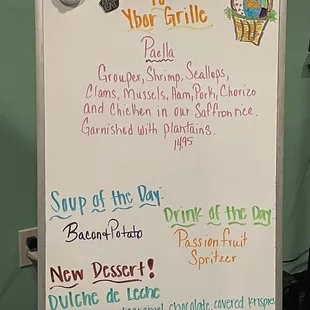 To
Ybor Grille
Paella
Grouper, Shrimp, Scallops,
Clams, Mussels, Ham, Pork, Chorizo
and Chicken in our Saffron rice.
Garnished with plantains.
14.95
Soup of the Day:
Bacon + Potato
Drink of the Day
Passionfruit
Spritzer
New Dessert!
Dulche de Leche
caramel chocolate covered krispies